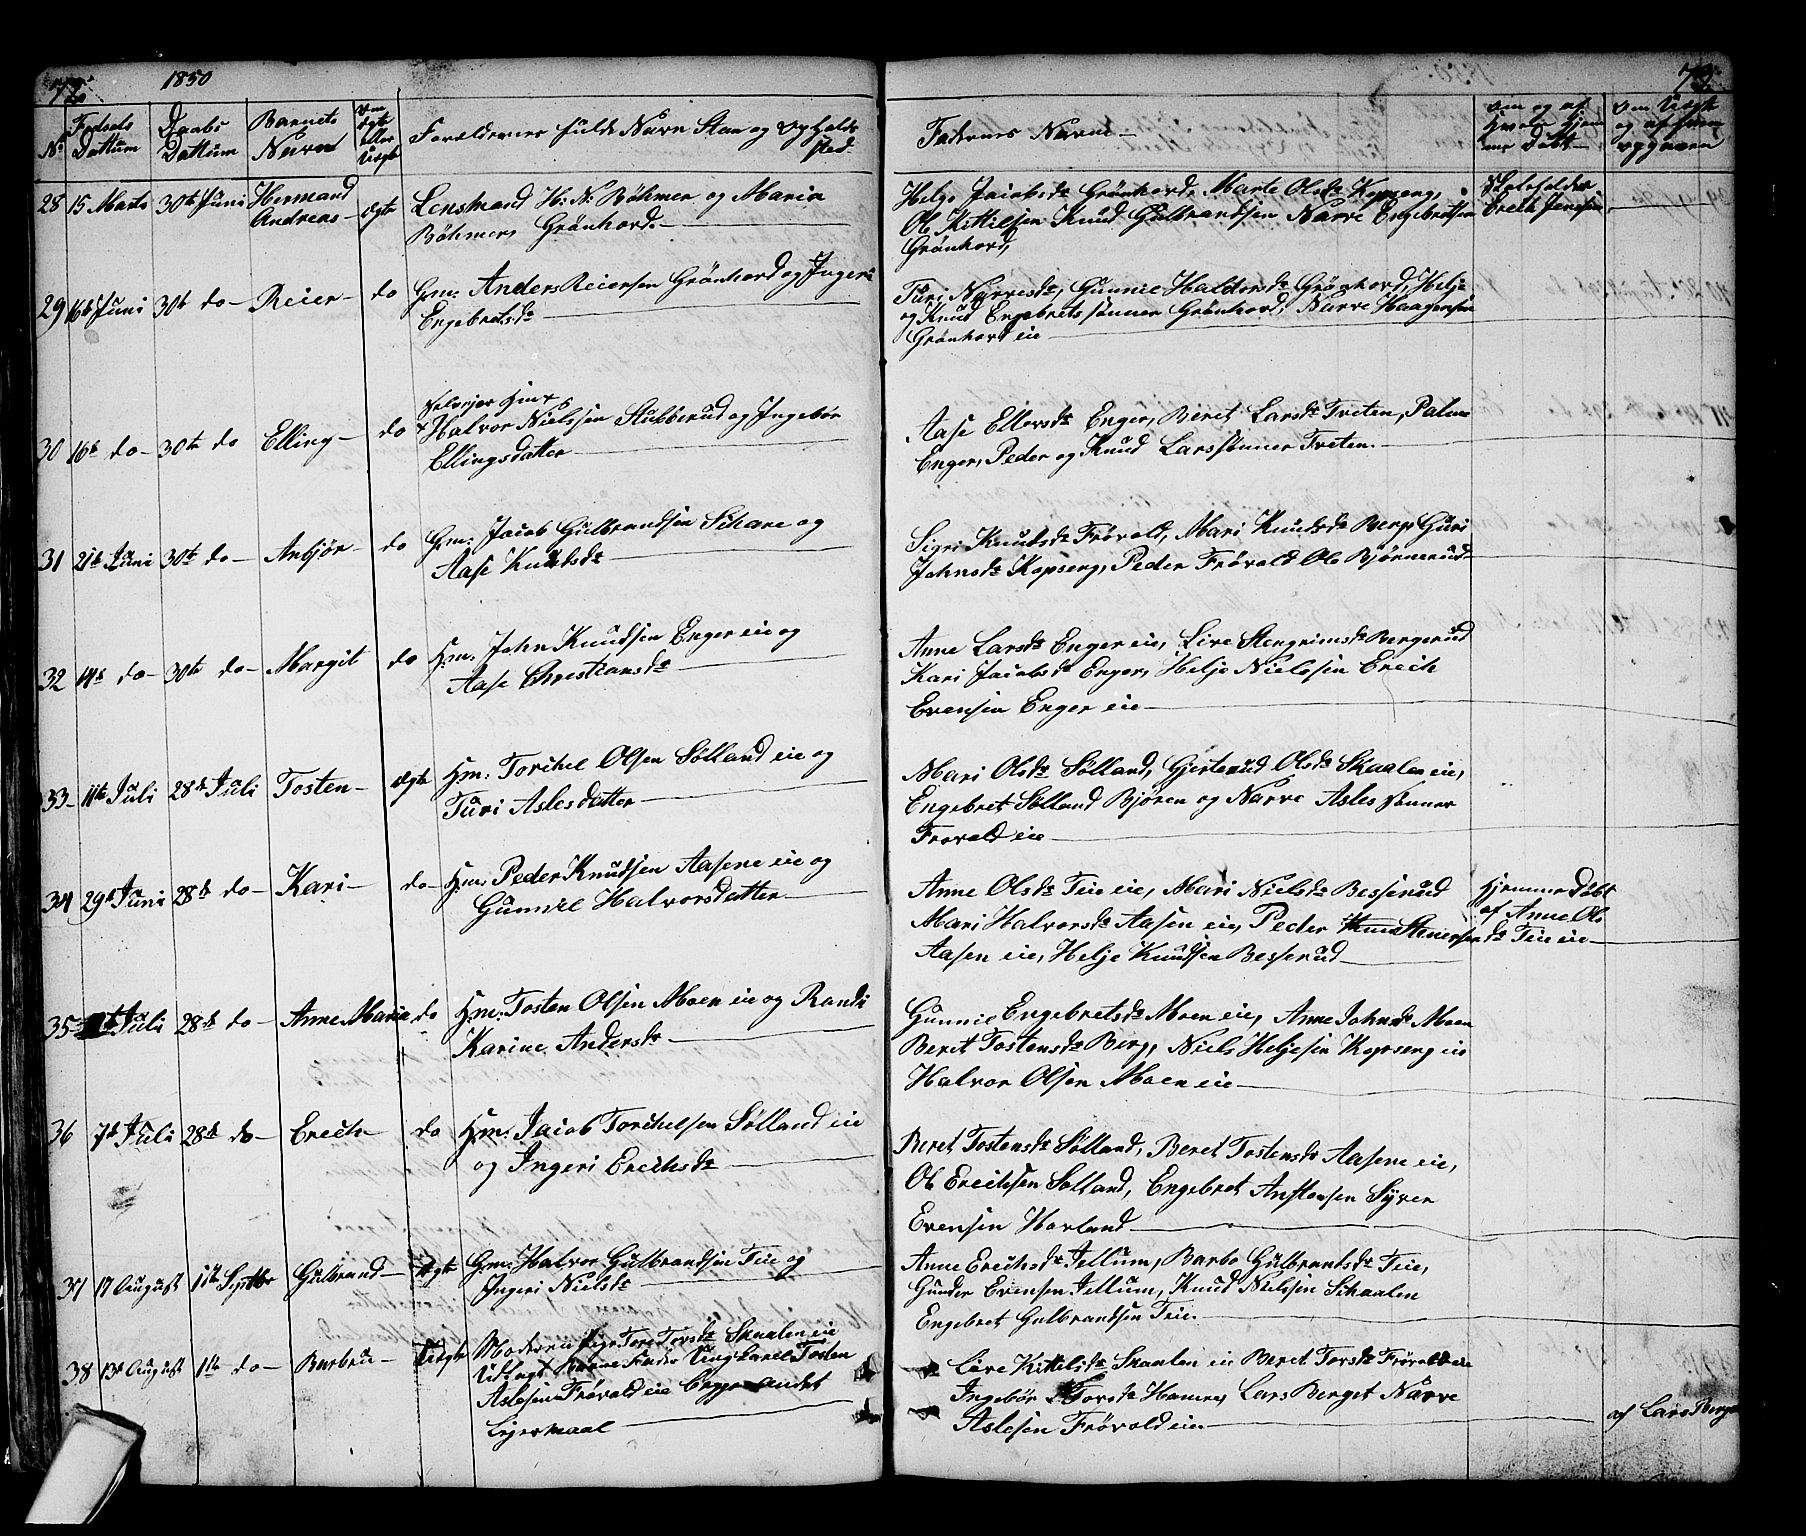 72 1850 73
No Fødsels Dattum Daabs Dattum Barnets Navn Om Ægte eller Uægt Foreldrenes fulde Navn Stan og Opholds sted Fadernes Navne Om og af Hvem Hjemme Døbt Om Uægt og af
28 15 Marts 30te Juni Hermand Andreas Ægte Lensmand H: N: Bøhmer og Maria
Bøhmers Grønhord.
Helge Jacobsdr Grønhord, Marte Olsdr Kopseng,
Ole Kittilsen Knud Gulbrandsen Narve Engebretsen
Grønhord,
Skoleholder
Erich Jensen
29 16de Juni 30te do Reier do Gm: Anders Reiersen Grønhord og Ingeri
Engebretsdr
Turi Narvesdr, Gunnil Haldorsdr Grønhord, Helje
og Knud Engebrets sønner Grønhord, Narve Haagensen
Grønhord eie
30 16de do 30te do Elling do Selvejer
Halvor Nielssen Stubberud og Ingebør
Ellingsdatter
Aase Ellevsdr Enger, Beret Larsdr Treten, Palme
Enger, Peder og Knud Larssønner Treten.
31 21de Juni 30te do Anbjør do Gm: Jacob Gulbrandsen Schare og
Aase Knudsdr
Sigri Knudsdr Frøvold, Mari Knudsdr Berg Guri
Johnsdr Kopseng, Peder Frøvold Ole Bjørnerud
32 14de do 30te do Margit do Hm. John Knudsen Enger eie og
Aase Christiansdr
Anne Larsdr Enger eie, Live Stengrimsdr Bergerud
Kari Jacobsdr Enger, Helje Nielssen Erich
Evensen Enger eie
33 11te Juli 28de Juli Tosten ægte Hm: Torchel Olsen Sølland eie og
Turi Aslesdatter
Mari Olsdr Sølland, Gjertrud Olsdr Skaalen eie,
Engebret Sølland Bjøren og Narve Asles sønner
Frøvold eie
34 29de Juni 28de do Kari do Hm: Peder Knudsen Aasene eie og
Gunnil Halvorsdatter
Anne Olsdr Teie eie, Mari Nielsdr Besserud
Mari Halvorsdr Aasen eie, Peder Stenersen
Aasen eie, Helje Knudsen Besserud
Hjemmedøbt
af Anne Ols
dr Teie eie
35 Juli 28de do Anne Marie do Hm: Tosten Olsen Moen eie og Randi
Karine Andersdr
Gunnil Engebretsdr Moen eie, Anne Johnsdr Moen
Beret Tostensdr Berg, Niels Heljesen Kopseng eie
Halvor Olsen Moen eie
36 7de Juli 28de do Erich do Hm: Jacob Torchelsen Sølland eie
og Ingeri Erichsdr
Beret Tostensdr Sølland, Beret Tostensdr Aasene eie,
Ole Erichsen Sølland, Engebret Anstensen Syver
Evensen Horland
37 17 August 1te Septbr Gulbrand Ægte Gm: Halvor Gulbrandsen Teie og
Ingeri Nielsdr
Anne Erichsdr Jellum, Barbo Gulbrandsdr Teie,
Gunder Evensen Jellum, Knud Nielssen Schaalen
Engebret Gulbrandsen Teie.
38 13de August 1te do Barbru Uægte Moderen Pige Tore Torsdr Skaalen eie
Udlagt Barne Fader Ungkarl Tosten
Aslesen Frøvold eie Begge andet
Lejermaal
Live Kittelsdr Skaalen eie Beret Torsdr Frøvold eie
Ingebør Torsdr Hamre, Lars Berget Narve
Aslesen Frøvold eie.
af Lars Berget